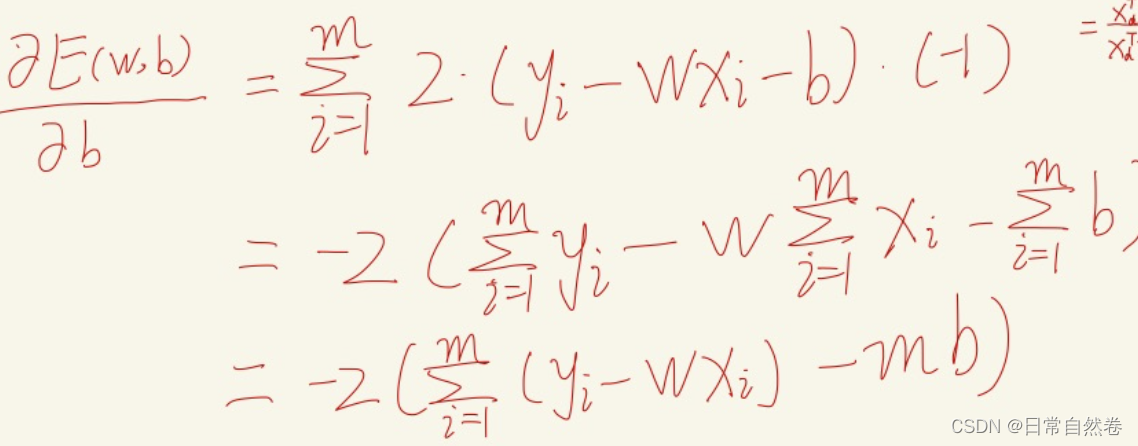 ∂E(w,b)/∂b = ∑_{i=1}^{m} 2·(y_i − wx_i − b)·(−1)
= −2(∑_{i=1}^{m} y_i − w∑_{i=1}^{m} x_i − ∑_{i=1}^{m} b)
= −2(∑_{i=1}^{m} (y_i − wx_i) − mb)
CSDN @日常自然卷